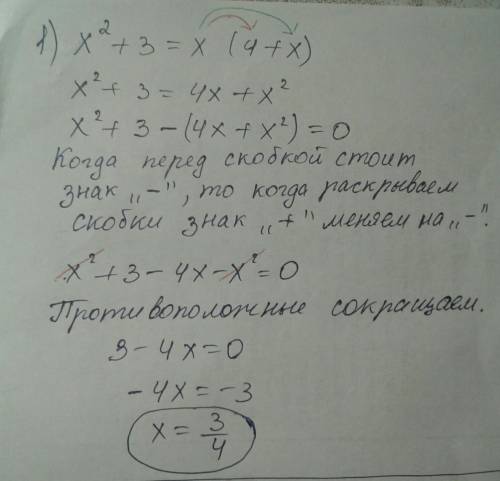 1) x² + 3 = x (4 + x)
x² + 3 = 4x + x²
x² + 3 - (4x + x²) = 0
Когда перед скобкой стоит
знак „-“, то когда раскрываем
скобки знак „+“ меняем на „-“.
x² + 3 - 4x - x² = 0
Противоположные сокращаем.
3 - 4x = 0
- 4x = -3
x = 3/4